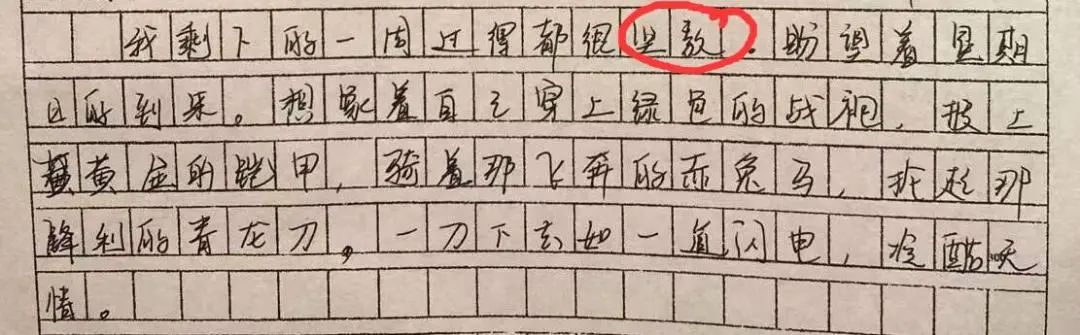 我剩下的一周过得都很坚毅．盼望着星期
日的到来。想象着自己穿上绿色的战袍，披上
黄金的铠甲，骑着那飞奔的赤兔马，抡起那
锋利的青龙刀。一刀下去如一道闪电，冷酷无
情。